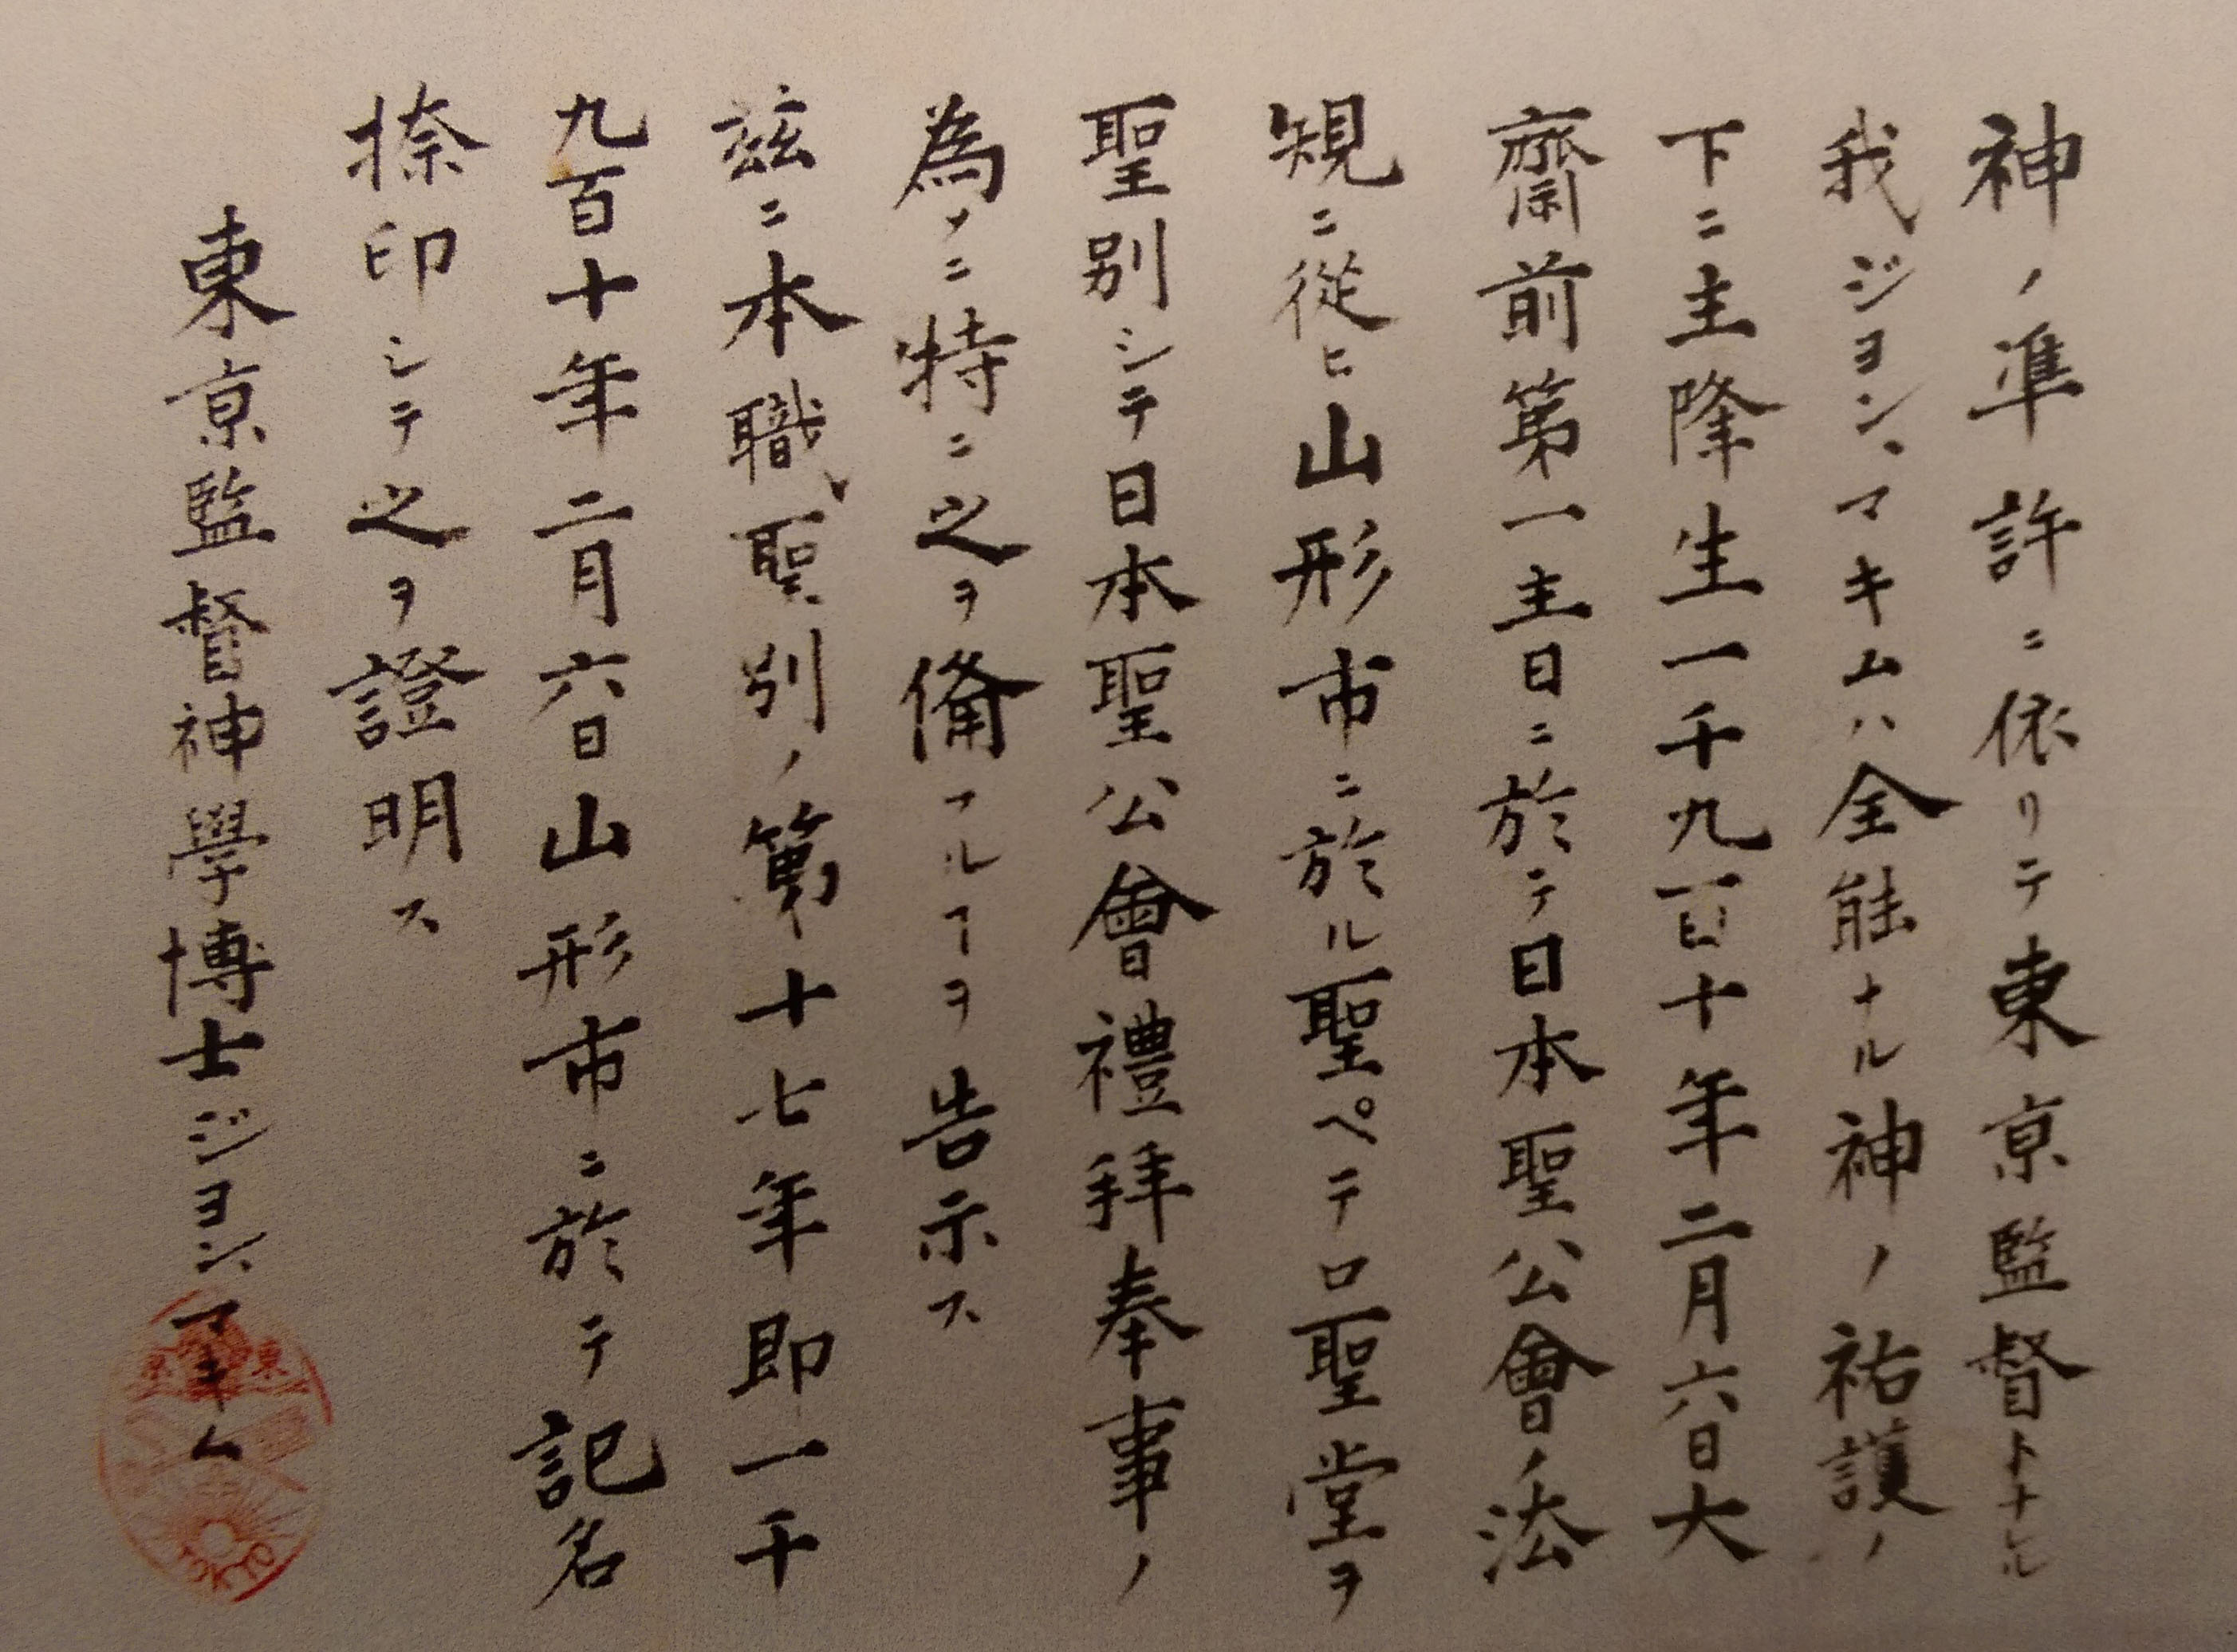 神ノ準許ニ依リテ東京監督トナル
我ジヨン、マキムハ全能ナル神ノ祐護ノ
下ニ主降生一千九百十年二月六日大
齋前第一主日ニ於テ日本聖公會ノ法
規ニ從ヒ山形市ニ於ル聖ペテロ聖堂ヲ
聖別シテ日本聖公會禮拜奉事ノ
為メニ特ニ之ヲ備フルヿヲ告示ス
茲ニ本職聖別ノ第十七年即一千
九百十年二月六日山形市ニ於テ記名
捺印シテ之ヲ證明ス
東京監督神學博士ジヨン、マキム
東京
TOKYO